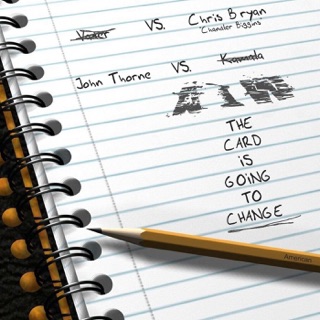 Vader VS. Chris Bryan
Chandler Biggins
John Thorne VS. Kamala
AIW
THE
CARD
iS
GOiNG
TO
CHANGE
American